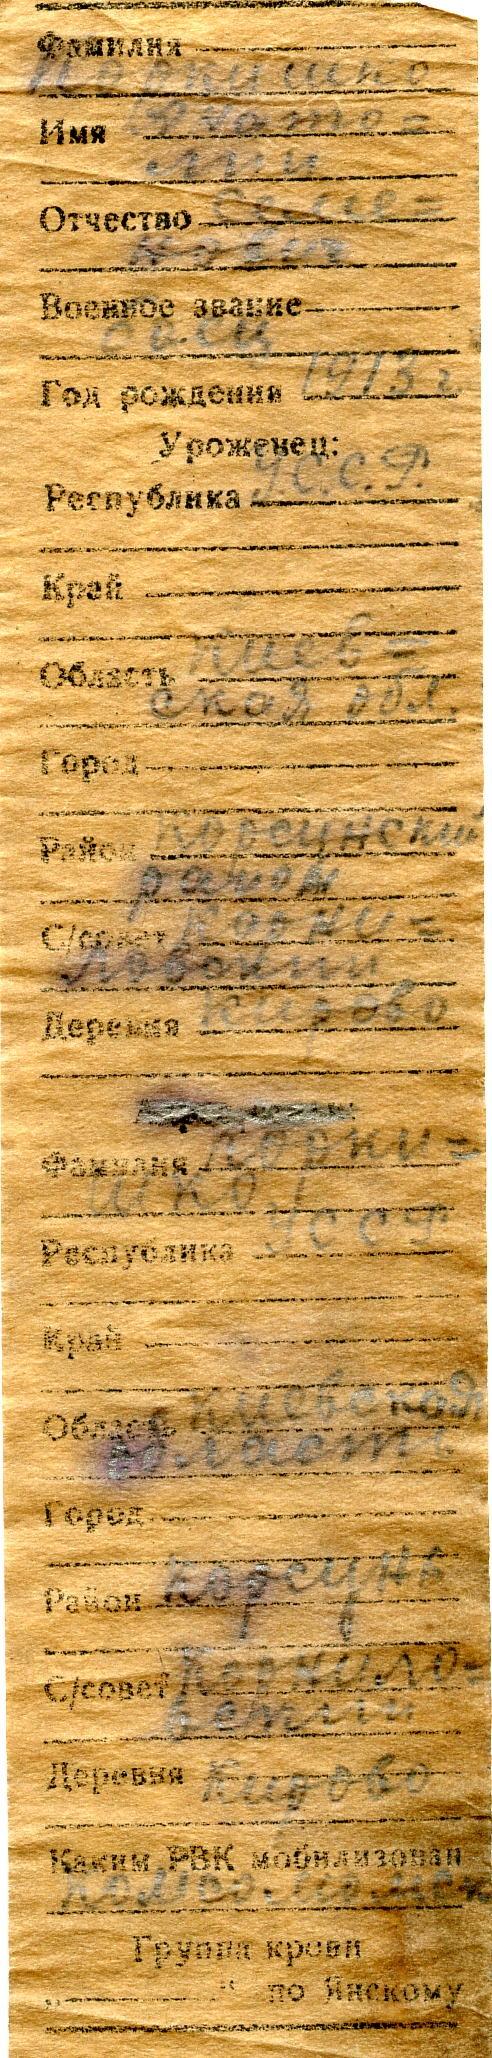 Фамилия
Имя
Отчество Семе=
нович
Военное звание
боец
Год рождения 1913 г.
Уроженец:
Республика УС.С.Р.
Край
Область Киев=
ская обл.
Город
Район Корсунский
район
С/совет Корни=
Деревня Кирово
Фамилия Корни=
шко
Республика УССР
Край
Область Киевской
области
Город
Район Корсунь
С/совет Корнило=
Деревня Кирово
Каким РВК мобилизован
Группа крови
„ “ по Янскому